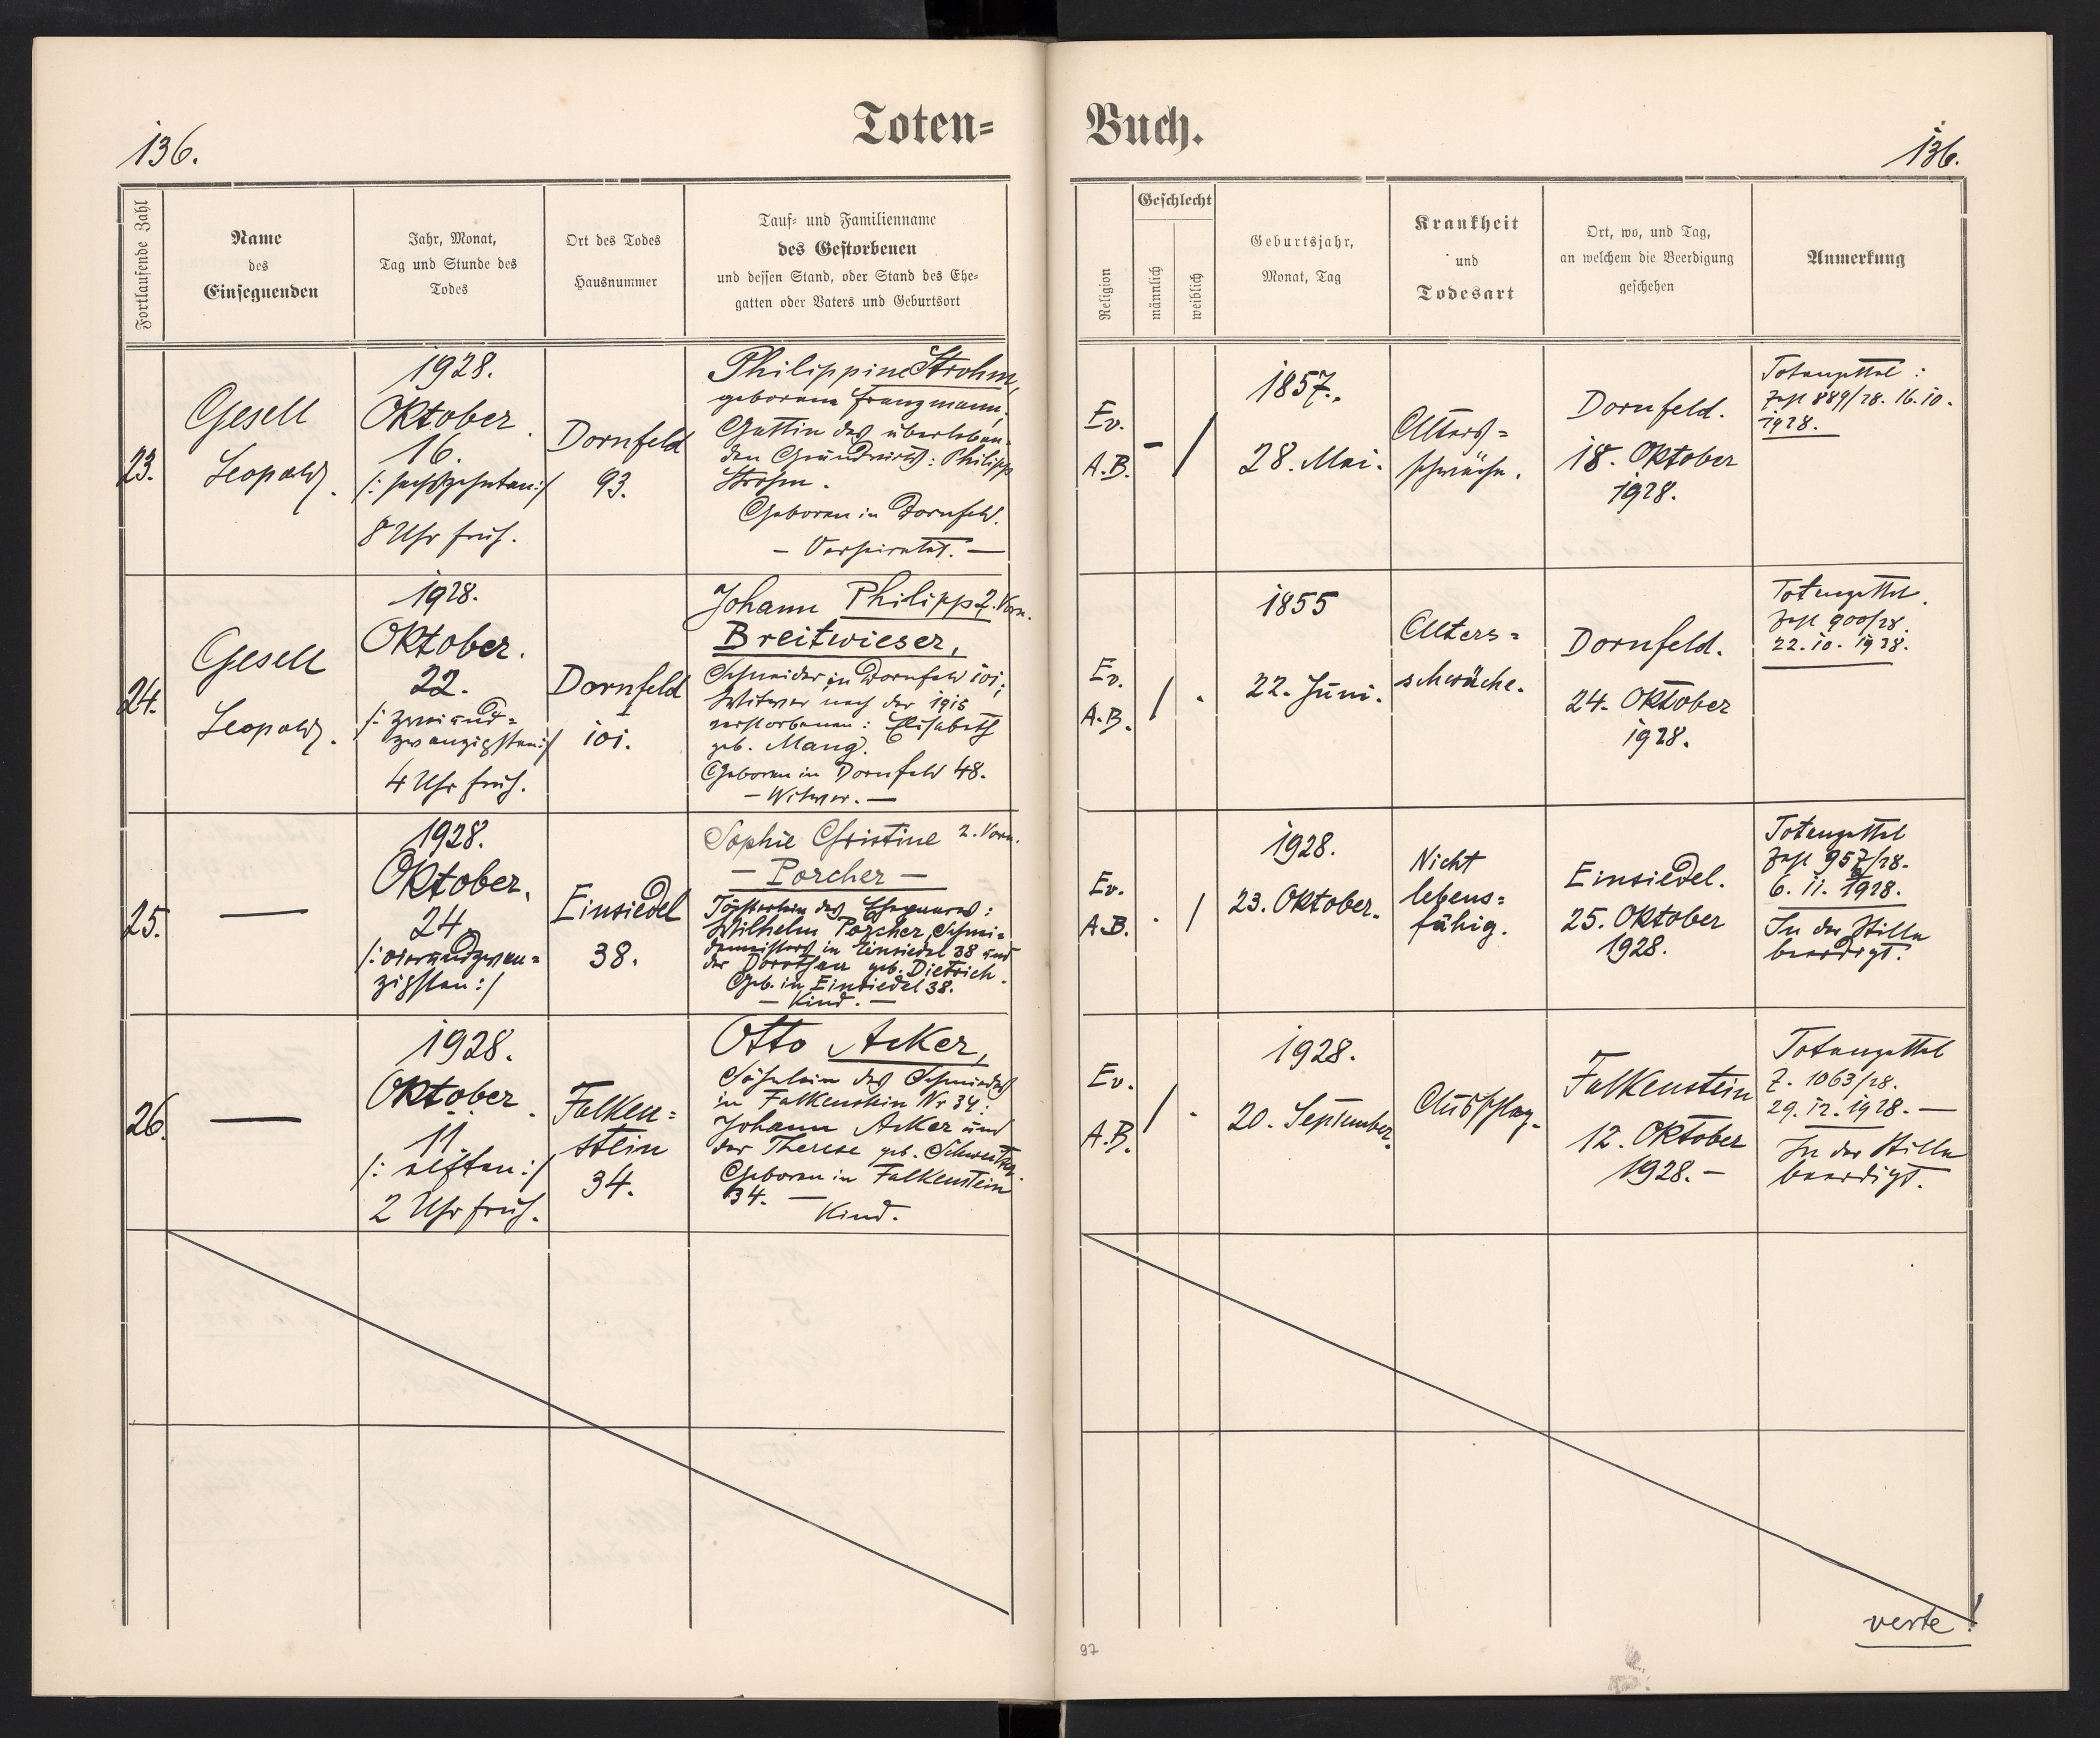 136.
Toten=
Buch.
136.
Fortlaufende Zahl
Name
des
Einsegnenden
Jahr, Monat,
Tag und Stunde des
Todes
Ort des Todes
Hausnummer
Tauf= und Familienname
des Gestorbenen
und dessen Stand, oder Stand des Ehe=
gatten oder Vaters und Geburtsort
Religion
Geschlecht
männlich
weiblich
Geburtsjahr,
Monat, Tag
Krankheit
und
Todesart
Ort, wo, und Tag,
an welchem die Beerdigung
geschehen
Anmerkung
23.
Gesell
Leopold.
1928.
Oktober.
16.
/: sechszehnten :/
8 Uhr früh.
Dornfeld
93.
Philippine Strohm,
geborene Franzmann,
Gattin des überleben=
den Grundwirts: Philipp
Strohm.
Geboren in Dornfeld.
— Verheiratet. —
Ev.
A.B.
– /
1857.
28. Mai.
Alters=
schwäche.
Dornfeld.
18. Oktober
1928.
Totenzettel:
Zahl 889/28. 16.10.
1928.
24.
Gesell
Leopold.
1928.
Oktober.
22.
/: zweiund=
zwanzigsten :/
4 Uhr früh.
Dornfeld
101.
Johann Philipp 2. Vorn.
Breitwieser,
Schneider in Dornfeld 101,
Witwer nach der 1915
verstorbenen: Elisabeth
geb. Mang.
Geboren in Dornfeld 48.
— Witwer. —
Ev.
A.B.
/ .
1855
22. Juni.
Alters=
schwäche.
Dornfeld.
24. Oktober
1928.
Totenzettel.
Zahl 900/28.
22.10.1928.
25.
—
1928.
Oktober.
24.
/: vierundzwan=
zigsten :/
Einsiedel
38.
Sophie Christine 2. Vorn.
— Porcher —
Töchterlein des Ehepaares:
Wilhelm Porcher, Schmi=
demeisters in Einsiedel 38 und
der Dorothea geb. Dietrich.
Geb. in Einsiedel 38.
— Kind. —
Ev.
A.B.
. /
1928.
23. Oktober.
Nicht
lebens=
fähig.
Einsiedel.
25. Oktober
1928.
Totenzettel
Zahl 957/28.
6. 11. 1928.
In der Stille
beerdigt.
26.
—
1928.
Oktober.
11.
/: elften :/
2 Uhr früh.
Falken=
stein
34.
Otto Acker,
Söhnlein des Schmiedes
in Falkenstein Nr 34:
Johann Acker und
der Therese geb. Schweitzer.
Geboren in Falkenstein
34. —
Kind.
Ev.
A.B.
/ .
1928.
20. September.
Falkenstein
12. Oktober
1928. –
Totenzettel
Z. 1063/28.
29.12.1928. —
In der Stille
beerdigt.
verte!
97